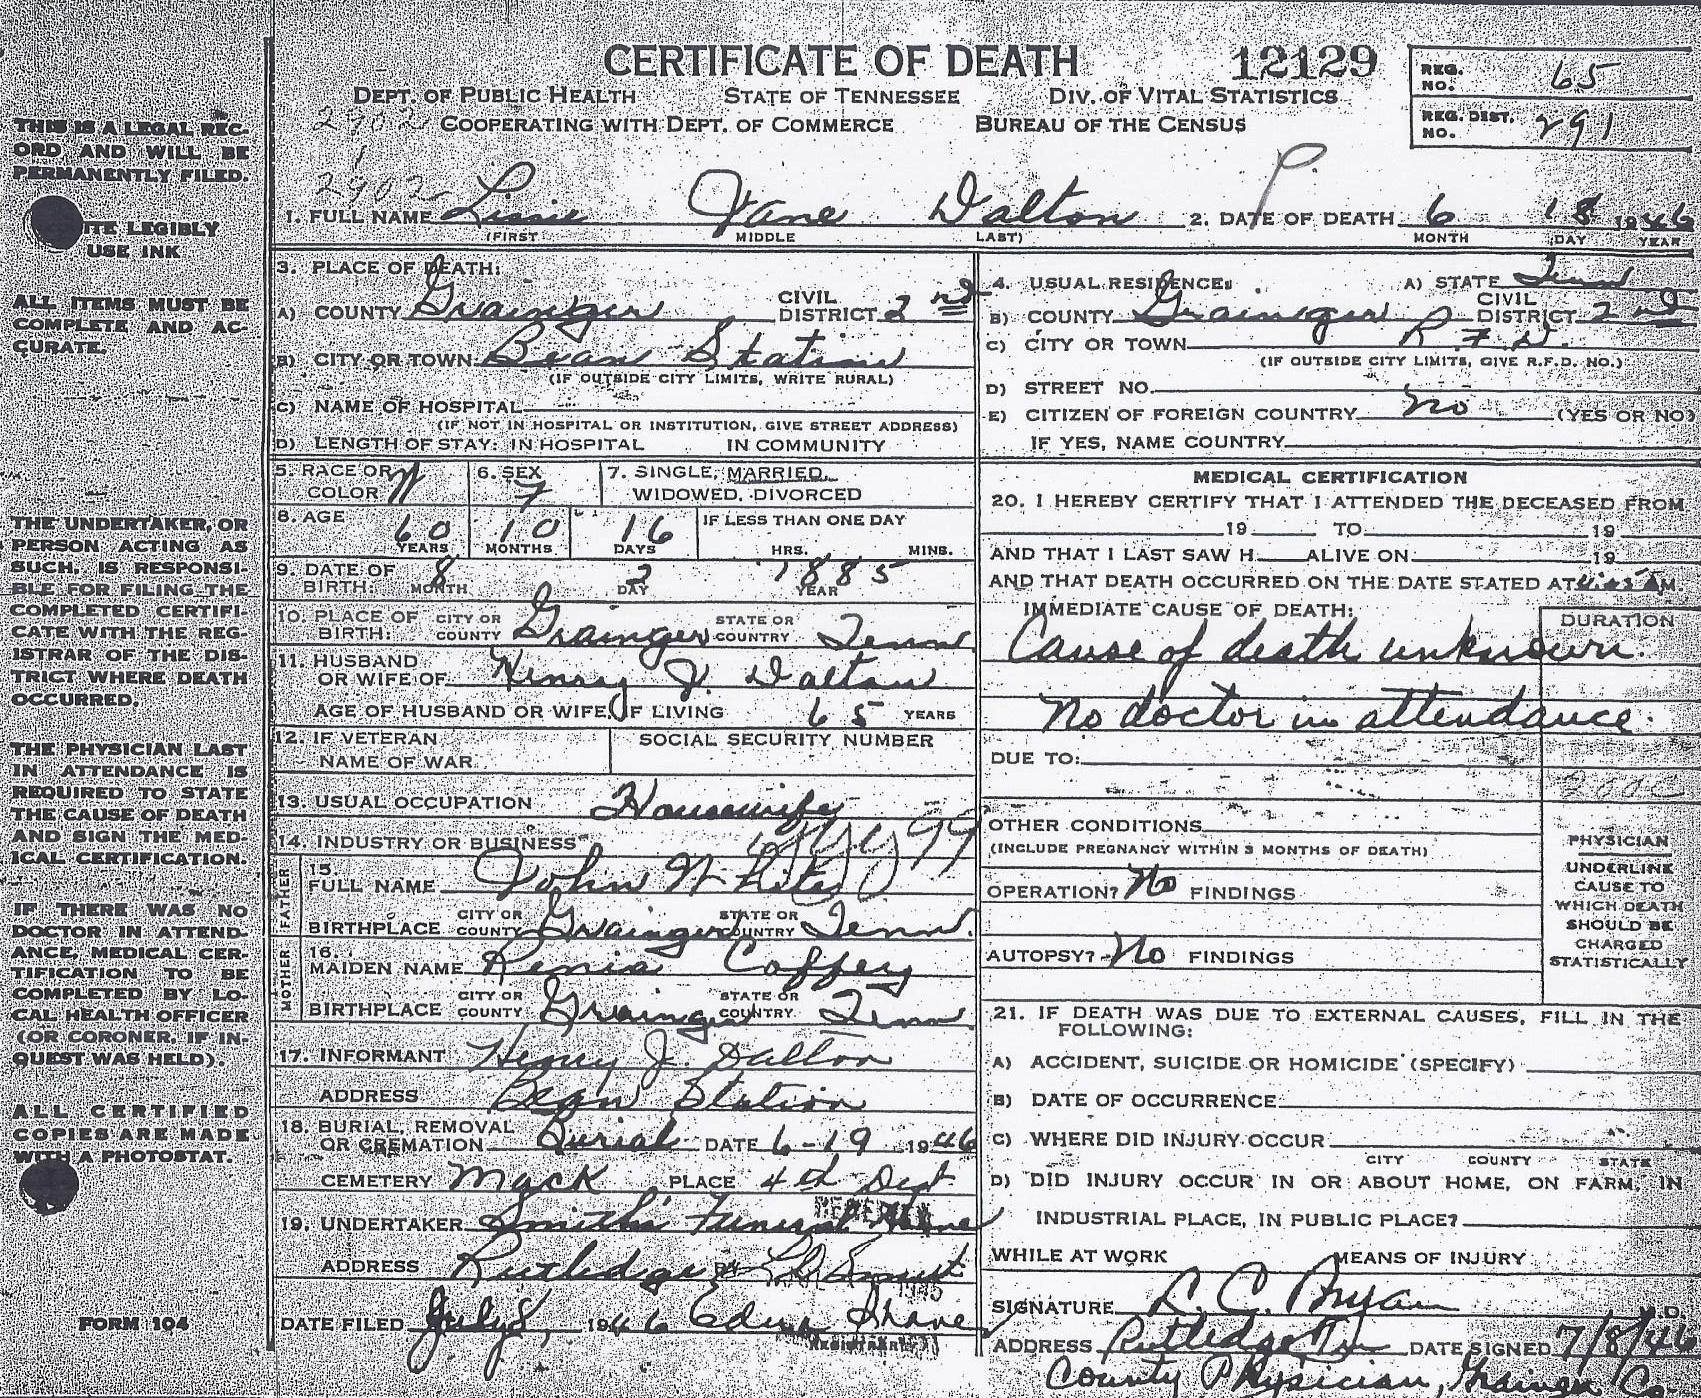 CERTIFICATE OF DEATH 12129
REG. NO. 65
DEPT. OF PUBLIC HEALTH STATE OF TENNESSEE DIV. OF VITAL STATISTICS
COOPERATING WITH DEPT. OF COMMERCE BUREAU OF THE CENSUS
REG. DIST. NO. 291
2902
1
2902
P.
1. FULL NAME Lissie Jane Dalton 2. DATE OF DEATH 6 18 1946
(FIRST MIDDLE LAST) MONTH DAY YEAR
THIS IS A LEGAL REC-
ORD AND WILL BE
PERMANENTLY FILED.
ITE LEGIBLY
USE INK
ALL ITEMS MUST BE
COMPLETE AND AC-
CURATE.
THE UNDERTAKER, OR
PERSON ACTING AS
SUCH, IS RESPONSI-
BLE FOR FILING THE
COMPLETED CERTIFI-
CATE WITH THE REG-
ISTRAR OF THE DIS-
TRICT WHERE DEATH
OCCURRED.
THE PHYSICIAN LAST
IN ATTENDANCE IS
REQUIRED TO STATE
THE CAUSE OF DEATH
AND SIGN THE MED-
ICAL CERTIFICATION.
IF THERE WAS NO
DOCTOR IN ATTEND-
ANCE, MEDICAL CER-
TIFICATION TO BE
COMPLETED BY LO-
CAL HEALTH OFFICER
(OR CORONER, IF IN-
QUEST WAS HELD).
ALL CERTIFIED
COPIES ARE MADE
WITH A PHOTOSTAT.
FORM 104
3. PLACE OF DEATH:
A) COUNTY Grainger CIVIL DISTRICT 2nd
B) CITY OR TOWN Bean Station
(IF OUTSIDE CITY LIMITS, WRITE RURAL)
C) NAME OF HOSPITAL
(IF NOT IN HOSPITAL OR INSTITUTION, GIVE STREET ADDRESS)
D) LENGTH OF STAY: IN HOSPITAL IN COMMUNITY
5. RACE OR COLOR W 6. SEX F 7. SINGLE, MARRIED, WIDOWED, DIVORCED
8. AGE 60 10 16 IF LESS THAN ONE DAY
YEARS MONTHS DAYS HRS. MINS.
9. DATE OF BIRTH: 8 2 1885
MONTH DAY YEAR
10. PLACE OF BIRTH: CITY OR COUNTY Grainger STATE OR COUNTRY Tenn
11. HUSBAND OR WIFE OF Henry J. Dalton
AGE OF HUSBAND OR WIFE, IF LIVING 65 YEARS
12. IF VETERAN NAME OF WAR SOCIAL SECURITY NUMBER
13. USUAL OCCUPATION Housewife
14. INDUSTRY OR BUSINESS
FATHER
15. FULL NAME John
BIRTHPLACE CITY OR COUNTY Grainger STATE OR COUNTRY Tenn.
MOTHER
16. MAIDEN NAME Renia Coffey
BIRTHPLACE CITY OR COUNTY Grainger STATE OR COUNTRY Tenn
17. INFORMANT Henry J. Dalton
ADDRESS Bean Station
18. BURIAL, REMOVAL OR CREMATION Burial DATE 6-19 1946
CEMETERY Mack PLACE 4th Dist
19. UNDERTAKER Smith's Funeral Home
ADDRESS Rutledge BY
DATE FILED July 8, 1946 Edna
REGISTRAR
4. USUAL RESIDENCE: A) STATE Tenn
B) COUNTY Grainger CIVIL DISTRICT 2nd
C) CITY OR TOWN R.F.D.
(IF OUTSIDE CITY LIMITS, GIVE R.F.D. NO.)
D) STREET NO.
E) CITIZEN OF FOREIGN COUNTRY No (YES OR NO)
IF YES, NAME COUNTRY
MEDICAL CERTIFICATION
20. I HEREBY CERTIFY THAT I ATTENDED THE DECEASED FROM
19 TO 19
AND THAT I LAST SAW H ALIVE ON 19
AND THAT DEATH OCCURRED ON THE DATE STATED AT M
IMMEDIATE CAUSE OF DEATH: DURATION
Cause of death unknown.
No doctor in attendance.
DUE TO:
200C
OTHER CONDITIONS
(INCLUDE PREGNANCY WITHIN 3 MONTHS OF DEATH)
OPERATION? No FINDINGS
AUTOPSY? No FINDINGS
PHYSICIAN
UNDERLINE
CAUSE TO
WHICH DEATH
SHOULD BE
CHARGED
STATISTICALLY
21. IF DEATH WAS DUE TO EXTERNAL CAUSES, FILL IN THE
FOLLOWING:
A) ACCIDENT, SUICIDE OR HOMICIDE (SPECIFY)
B) DATE OF OCCURRENCE
C) WHERE DID INJURY OCCUR
CITY COUNTY STATE
D) DID INJURY OCCUR IN OR ABOUT HOME, ON FARM, IN
INDUSTRIAL PLACE, IN PUBLIC PLACE?
WHILE AT WORK MEANS OF INJURY
SIGNATURE L. C. Bryan M.D.
ADDRESS Rutledge Tn DATE SIGNED 7/8/46
County Physician, Co